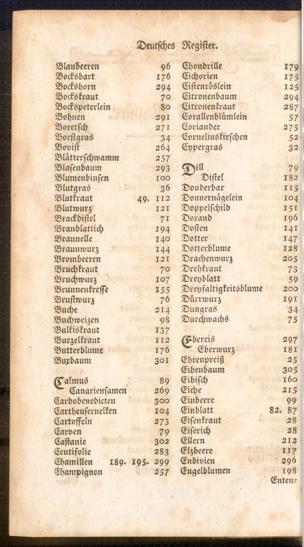 Deutsches Register.
Blaubeeren 96
Bocksbart 176
Bockshorn 294
Bockskraut 70
Bockspeterlein 80
Bohnen 291
Boretsch 271
Borstgras 34
Bovist 264
Blätterschwamm 257
Blasenbaum 293
Blumenbinsen 100
Blutgras 36
Blutkraut 49. 112
Blutwurz 121
Brackdistel 71
Brandlattich 194
Braunelle 140
Braunwurz 144
Brombeeren 121
Bruchkraut 70
Bruchwurz 107
Brunnenkresse 155
Brustwurz 76
Buche 214
Buchweizen 98
Bulkiskraut 137
Burzelkraut 112
Butterblume 176
Buxbaum 301
Calmus 89
Canariensamen 269
Cardobenedicten 300
Cartheusernelken 104
Cartoffeln 273
Carven 79
Castanie 302
Centifolie 283
Chamillen 189. 195. 299
Champignon 257
Chondrille 179
Cichorien 175
Cistenröslein 125
Citronenbaum 294
Citronenkraut 287
Corallenblümlein 57
Coriander 275
Corneliuskirschen 52
Cyppergras 32
Dill 79
Distel 182
Donderbar 115
Donnernägelein 104
Doppelschild 151
Dorand 196
Dosten 141
Dotter 147
Dotterblume 128
Drachenwurz 205
Drehkraut 73
Dreyblatt 59
Dreyfaltigkeitsblume 200
Dürrwurz 191
Dungras 34
Durchwachs 75
Ebereis 297
Eberwurz 181
Ehrenpreiß 25
Eibenbaum 305
Eibisch 160
Eiche 215
Einbeere 99
Einblatt 82. 87
Eisenkraut 28
Eiserich 28
Ellern 212
Elzbeere 117
Endivien 296
Engelblumen 198
Enten=